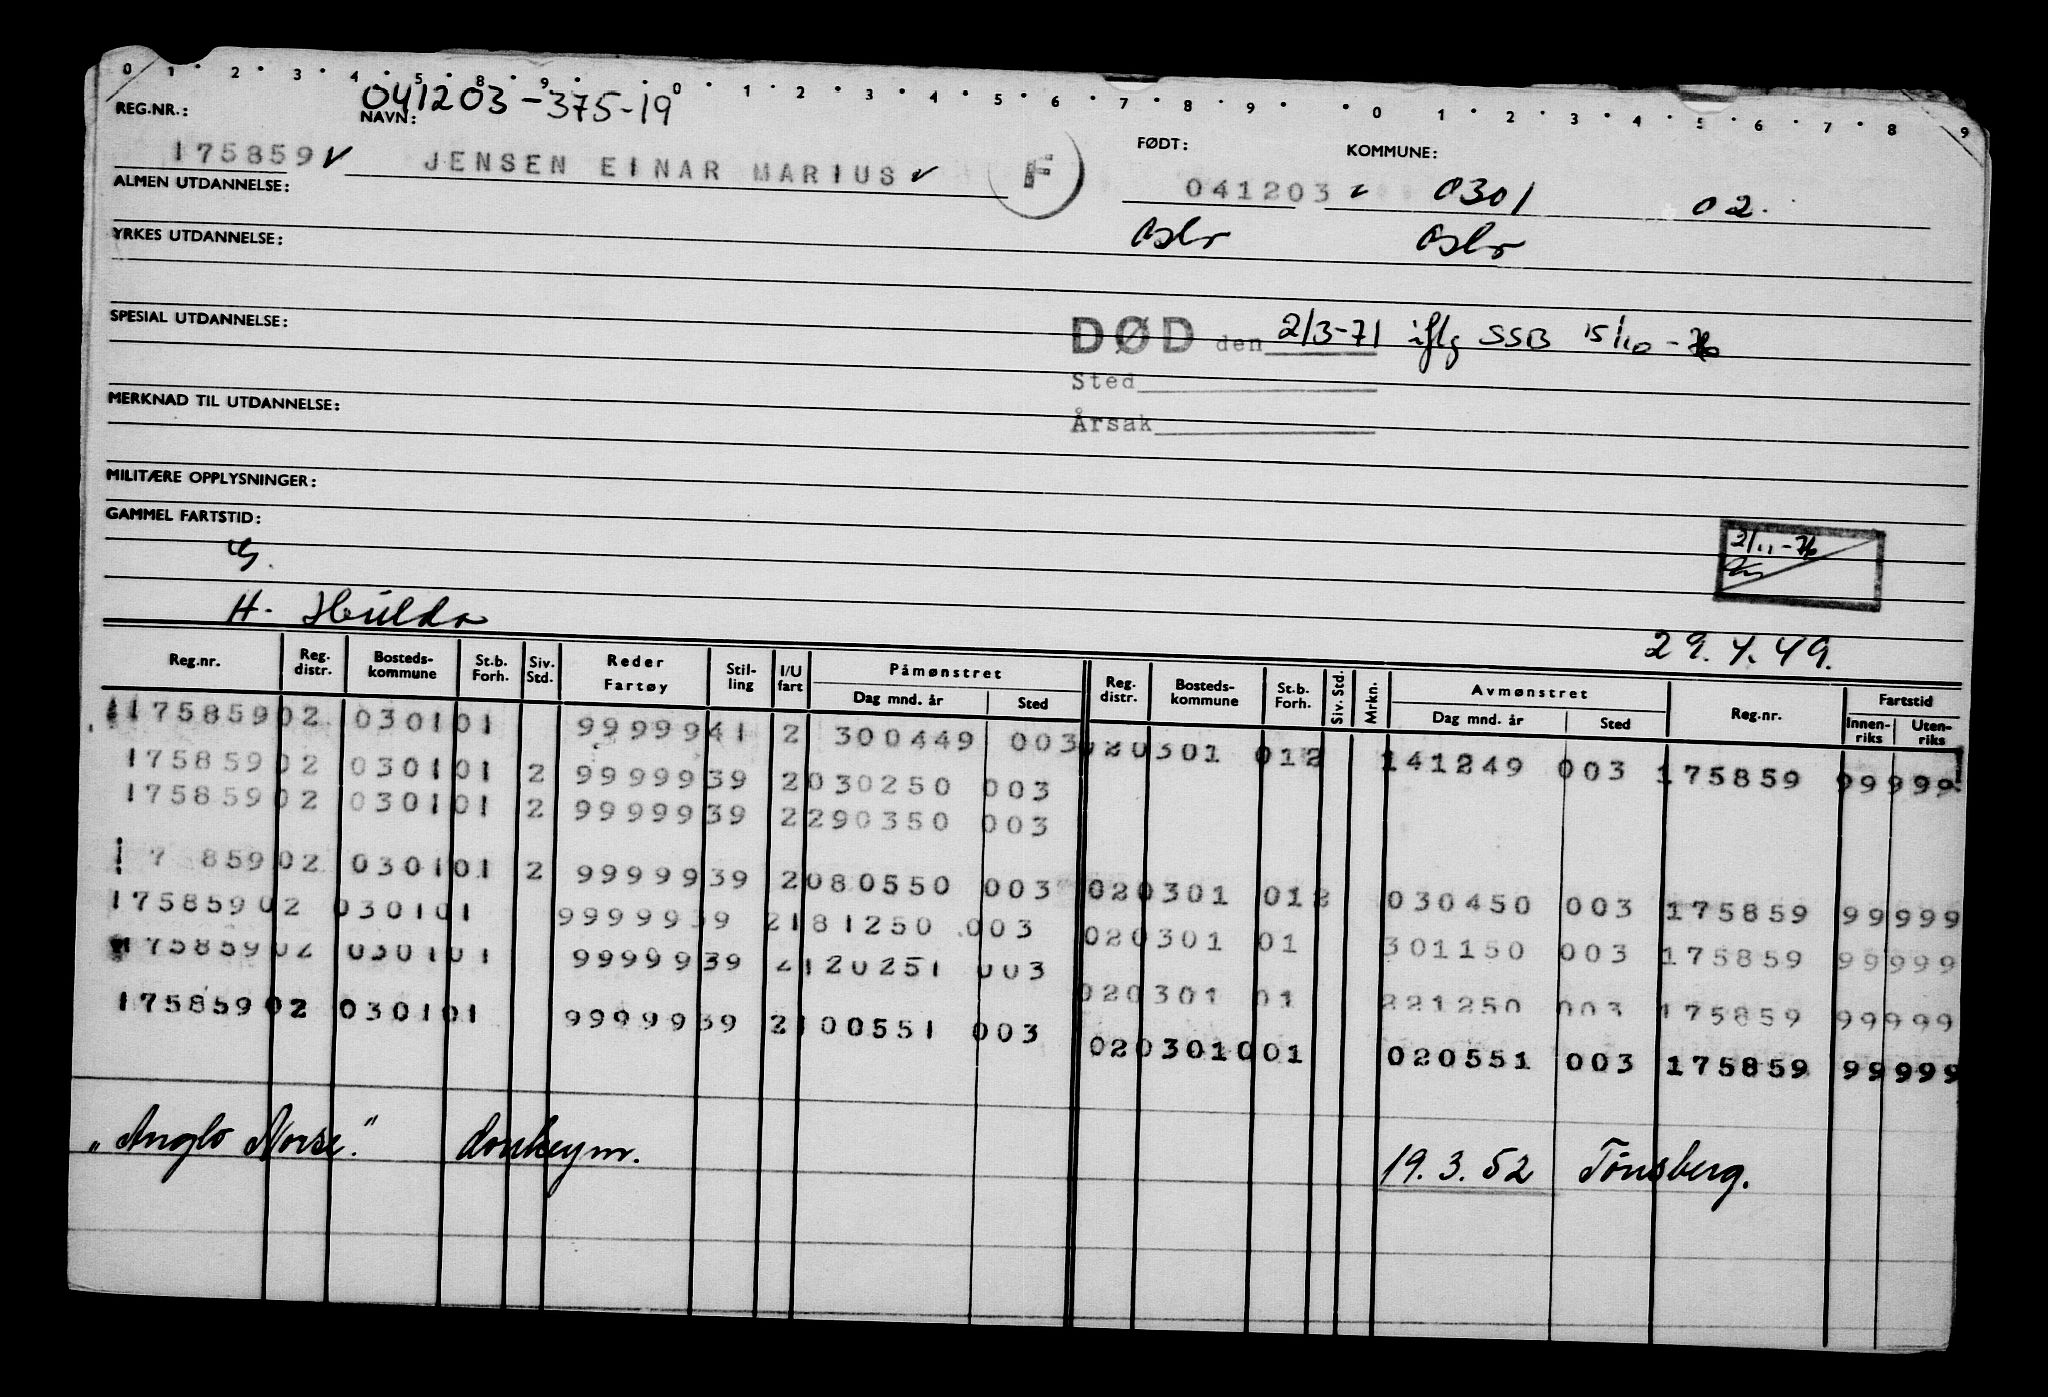 0 1 2 3 4 5 8 9 0 1 2 3 4 5 6 7 8 9 0 1 2 3 4 5 6 7 8 9
REG.NR.: NAVN: 041203-375-19 FØDT: KOMMUNE:
175859 JENSEN EINAR MARIUS F 041203 0301 02.
ALMEN UTDANNELSE:
Oslo Oslo
YRKES UTDANNELSE:
SPESIAL UTDANNELSE:
DØD den 2/3-71 iflg SSB 15/10-76
Sted
Årsak
MERKNAD TIL UTDANNELSE:
MILITÆRE OPPLYSNINGER:
GAMMEL FARTSTID:
2/11-76
G.
H. Hulda
29.4.49.
Reg.nr. Reg. distr. Bosteds-kommune St.b. Forh. Siv. Std. Reder Fartøy Stil-ling I/U fart Påmønstret Dag mnd. år Sted Reg. distr. Bosteds-kommune St.b. Forh. Siv. Std. Mrkn. Avmønstret Dag mnd. år Sted Reg.nr. Fartstid Innen-riks Uten-riks
175859 02 0301 01 99999 41 2 300449 003 02 0301 01 2 141249 003 175859 99999
175859 02 0301 01 2 99999 39 2 030250 003
175859 02 0301 01 2 99999 39 2 290350 003
1 7 859 02 0301 01 2 99999 39 2 080550 003 02 0301 01 2 030450 003 175859 99999
175859 02 0301 01 99999 39 2 181250 003 02 0301 01 301150 003 175859 99999
175859 02 0301 01 99999 39 2 120251 003 02 0301 01 221250 003 175859 99999
175859 02 0301 01 99999 39 2 100551 003 02 0301 001 020551 003 175859 99999
"Anglo Norse." donkeym. 19.3.52 Tönsberg.